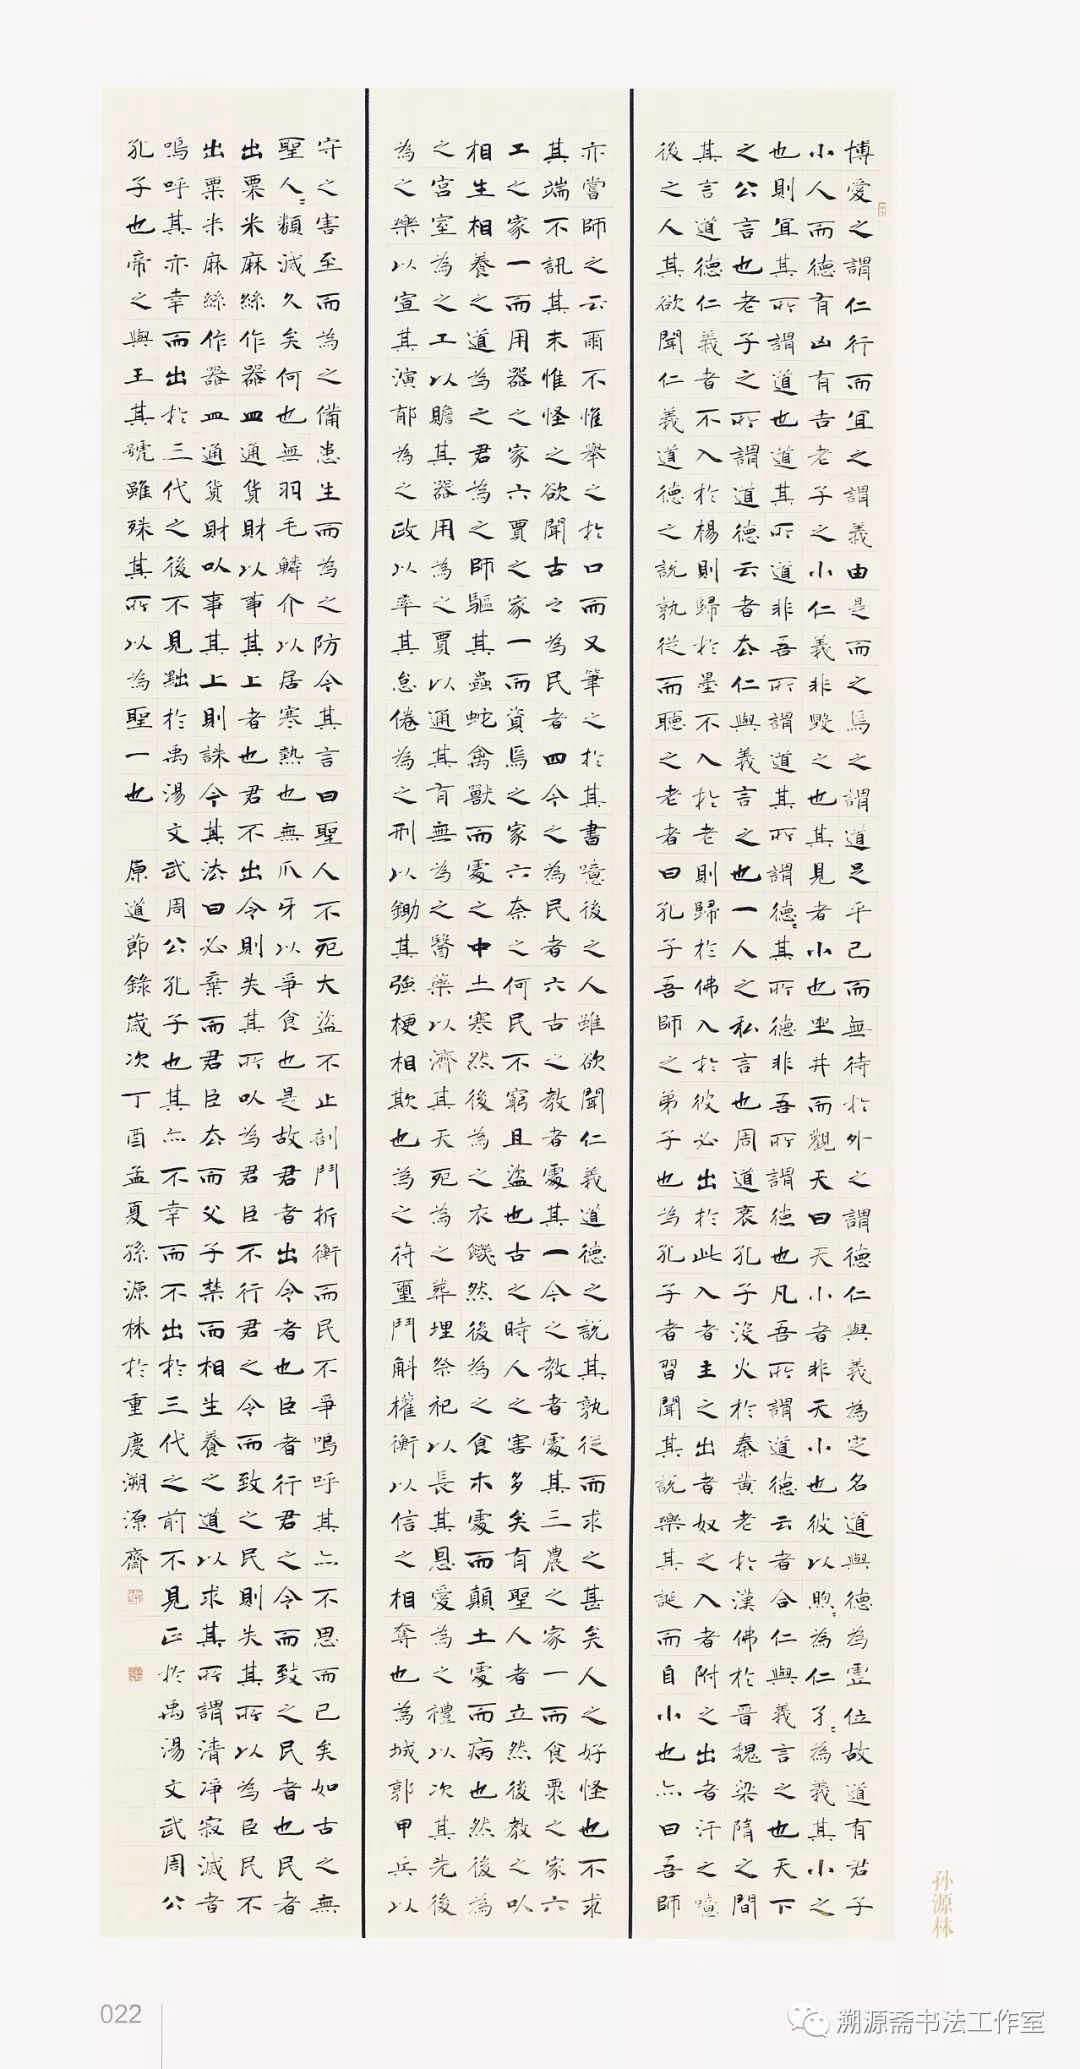 博愛之謂仁行而宜之謂義由是而之焉之謂道足乎己而無待於外之謂德仁與義為定名道與德為虛位故道有君子
小人而德有凶有吉老子之小仁義非毀之也其見者小也坐井而觀天曰天小者非天小也彼以煦〻為仁孑〻為義其小之
也則宜其所謂道也道其所道非吾所謂道其所謂德〻其所德非吾所謂德也凡吾所謂道德云者合仁與義言之也天下
之公言也老子之所謂道德云者去仁與義言之也一人之私言也周道衰孔子沒火於秦黄老於漢佛於晉魏梁隋之間
其言道德仁義者不入於楊則歸於墨不入於老則歸於佛入於彼必出於此入者主之出者奴之入者附之出者汙之噫
後之人其欲聞仁義道德之說孰從而聽之老者曰孔子吾師之弟子也為孔子者習聞其說樂其誕而自小也亦曰吾師
亦嘗師之云爾不惟舉之於口而又筆之於其書噫後之人雖欲聞仁義道德之說其孰從而求之甚矣人之好怪也不求
其端不訊其末惟怪之欲聞古之為民者四今之為民者六古之教者處其一今之教者處其三農之家一而食粟之家六
工之家一而用器之家六賈之家一而資焉之家六奈之何民不窮且盜也古之時人之害多矣有聖人者立然後教之以
相生相養之道為之君為之師驅其蟲蛇禽獸而處之中土寒然後為之衣饑然後為之食木處而顛土處而病也然後為
之宮室為之工以贍其器用為之賈以通其有無為之醫藥以濟其夭死為之葬埋祭祀以長其恩愛為之禮以次其先後
為之樂以宣其演郁為之政以率其怠倦為之刑以鋤其強梗相欺也為之符璽鬥斛權衡以信之相奪也為城郭甲兵以
守之害至而為之備患生而為之防今其言曰聖人不死大盜不止剖鬥折衡而民不爭嗚呼其亦不思而已矣如古之無
聖人〻類滅久矣何也無羽毛鱗介以居寒熱也無爪牙以爭食也是故君者出令者也臣者行君之令而致之民者也民者
出粟米麻絲作器皿通貨財以事其上者也君不出令則失其所以為君臣不行君之令而致之民則失其所以為臣民不
出粟米麻絲作器皿通貨財以事其上則誅今其法曰必棄而君臣去而父子禁而相生養之道以求其所謂清凈寂滅者
嗚呼其亦幸而出於三代之後不見黜於禹湯文武周公孔子也其亦不幸而不出於三代之前不見正於禹湯文武周公
孔子也帝之與王其號雖殊其所以為聖一也 原道節錄歲次丁酉孟夏孫源林於重慶溯源齋
孙源林
022
溯源斋书法工作室